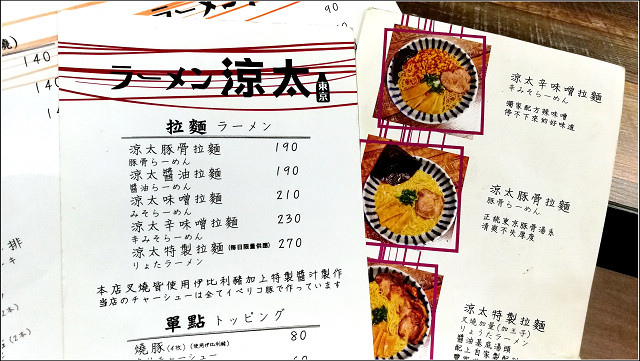 140
140
ラーメン 涼太 東京
拉麵 ラーメン
涼太豚骨拉麵 190
豚骨らーめん
涼太醬油拉麵 190
醤油らーめん
涼太味噌拉麵 210
みそらーめん
涼太辛味噌拉麵 230
辛みそらーめん
涼太特製拉麵(每日限量供應) 270
りょたラーメン
本店叉燒皆使用伊比利豬加上特製醬汁製作
当店のチャーシューは全てイベリコ豚で作っています
單點 トッピング
燒豚(4枚)(使用伊比利豬) 80
涼太辛味噌拉麵
辛みそらーめん
獨家配方辣味噌
停不下來的好味道
涼太豚骨拉麵
豚骨らーめん
正統東京豚骨湯头
清爽不失厚度
涼太特製拉麵
叉燒加量(加玉子)
りょうたラーメン
醬油基底湯頭
配上自家製
排
(2本)
(2本)